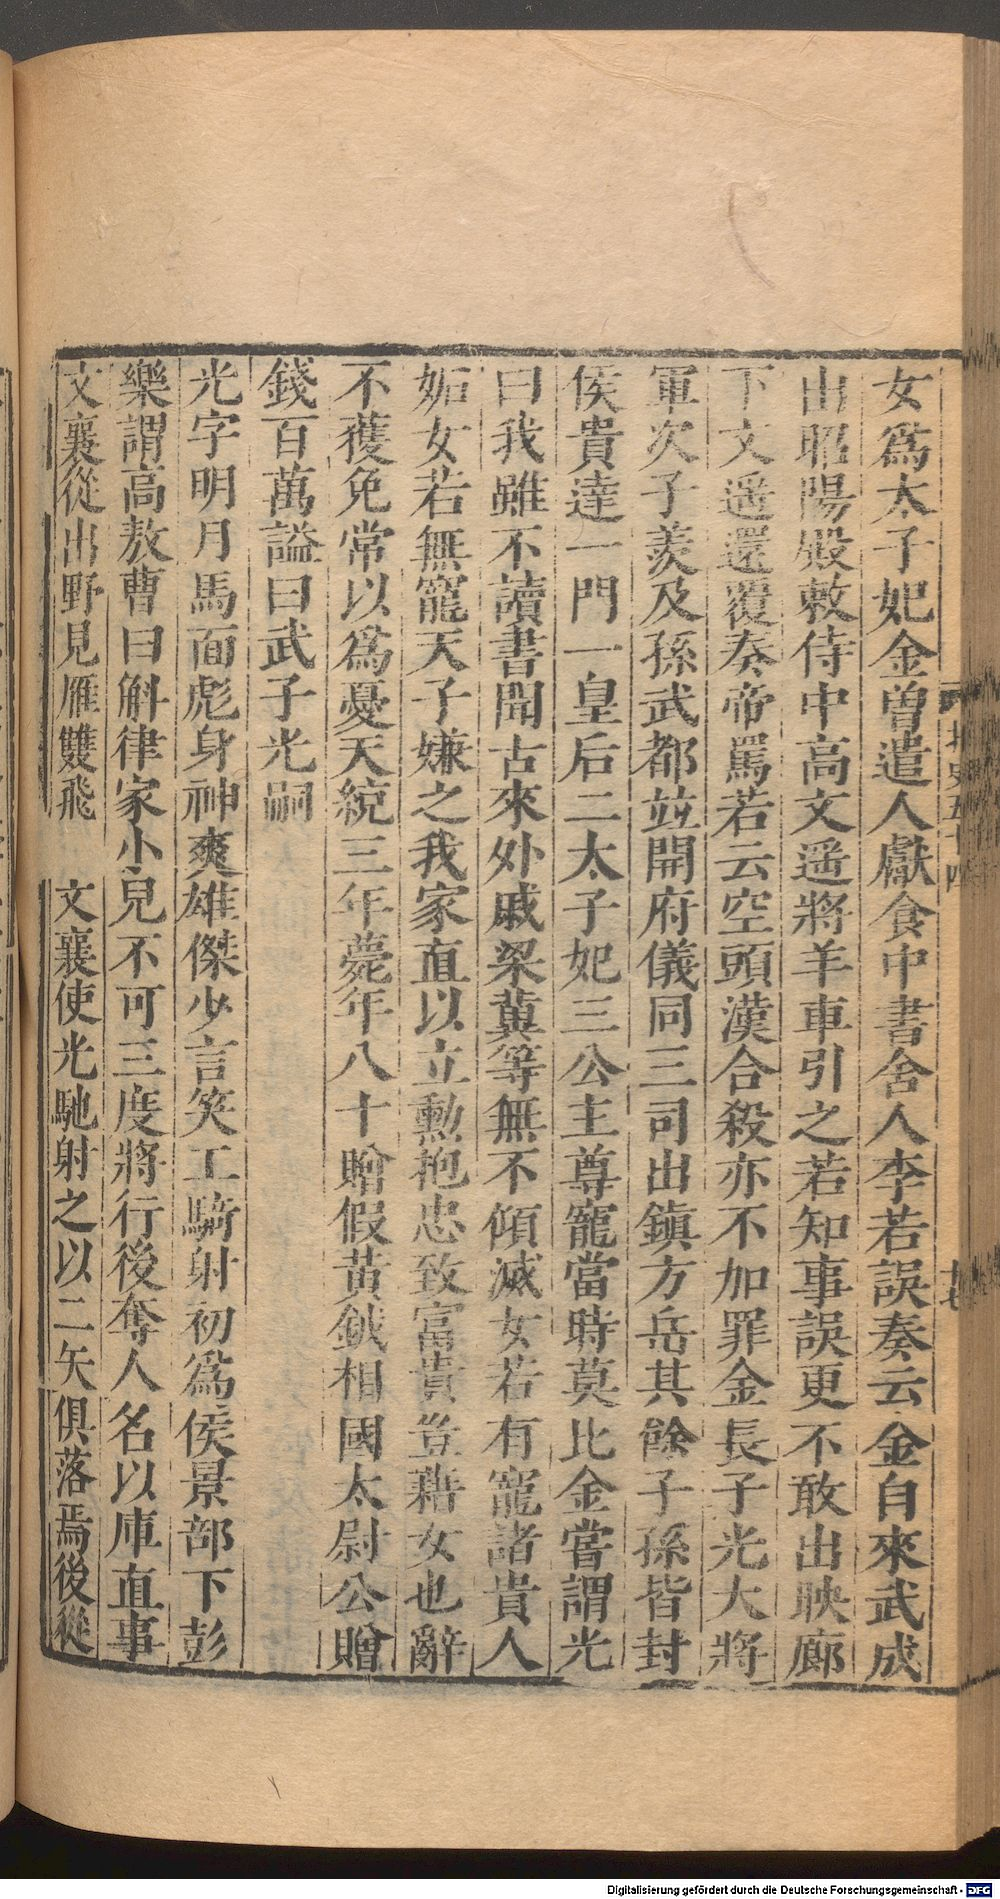 女爲太子妃金曽遣人獻食中書舍人李若誤奏云金自來武成
出昭陽殿敕侍中高文遥將羊車引之若知事誤更不敢出映廊
下文遥還覆奏帝罵若云空頭漢合殺亦不加罪金長子光大將
軍次子羨及孫武都並開府儀同三司出鎭方岳其餘子孫皆封
侯貴達一門一皇后二太子妃三公主尊寵當時莫比金嘗謂光
曰我雖不讀書聞古來外戚梁冀等無不傾滅女若有寵諸貴人
妬女若無寵天子嫌之我家直以立勳抱忠致富貴豈藉女也辭
不獲免常以爲憂天統三年薨年八十贈假黃鉞相國太尉公贈
錢百萬謚曰武子光嗣
光字明月馬面彪身神爽雄傑少言笑工騎射初爲侯景部下彭
樂謂高敖曹曰斛律家小兒不可三度將行後奪人名以庫直事
文襄從出野見雁雙飛 文襄使光馳射之以二矢俱落焉後從
北史五十四
十七
Digitalisierung gefördert durch die Deutsche Forschungsgemeinschaft - DFG